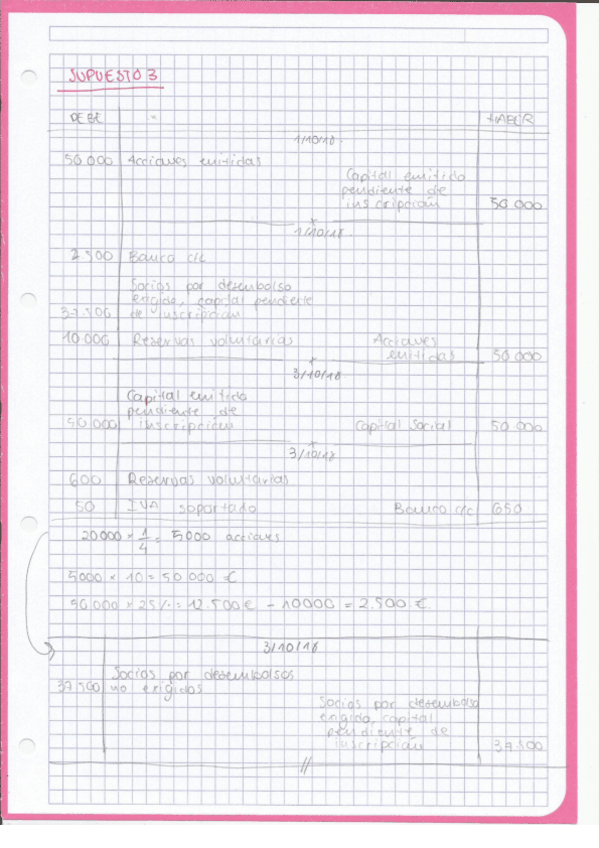 SUPUESTO 3
DEBE HABER
1/10/18
50.000 Acciones emitidas
Capital emitido
pendiente de
inscripción 50.000
1/10/18
2.500 Banco c/c
Socios por desembolso
exigido, capital pendiente
37.500 de inscripción
10.000 Reservas voluntarias Acciones
emitidas 50.000
3/10/18
Capital emitido
pendiente de
50.000 inscripción Capital Social 50.000
3/10/18
600 Reservas voluntarias
50 IVA soportado Banco c/c 650
20000 x 1/4 = 5000 acciones
5000 x 10 = 50.000 €
50.000 x 25% = 12.500 € - 10000 = 2.500 €
3/10/18
Socios por desembolsos
37.500 no exigidos
Socios por desembolso
exigido, capital
pendiente de
inscripción 37.500